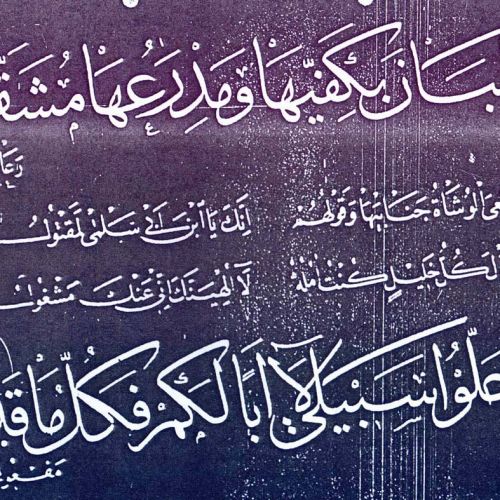 لبَانَ بِكَفَّيْهَا وَمِدْرَعُهَا مُشَقَّ
رَعَا
عى الْوُشَاةُ جَنَابَيْهَا وَقَوْلُهُمْ إِنَّكَ يَا ابْنَ أَبِي سَلْمَى لَمَقْتُولُ
ل كُلُّ خَلِيلٍ كُنْتُ آمُلُهُ لَا أُلْهِيَنَّكَ إِنِّي عَنْكَ مَشْغُولُ
خَلُّوا سَبِيلِي لَا أَبَا لَكُمُ فَكُلُّ مَا قَد
مَفْعُو